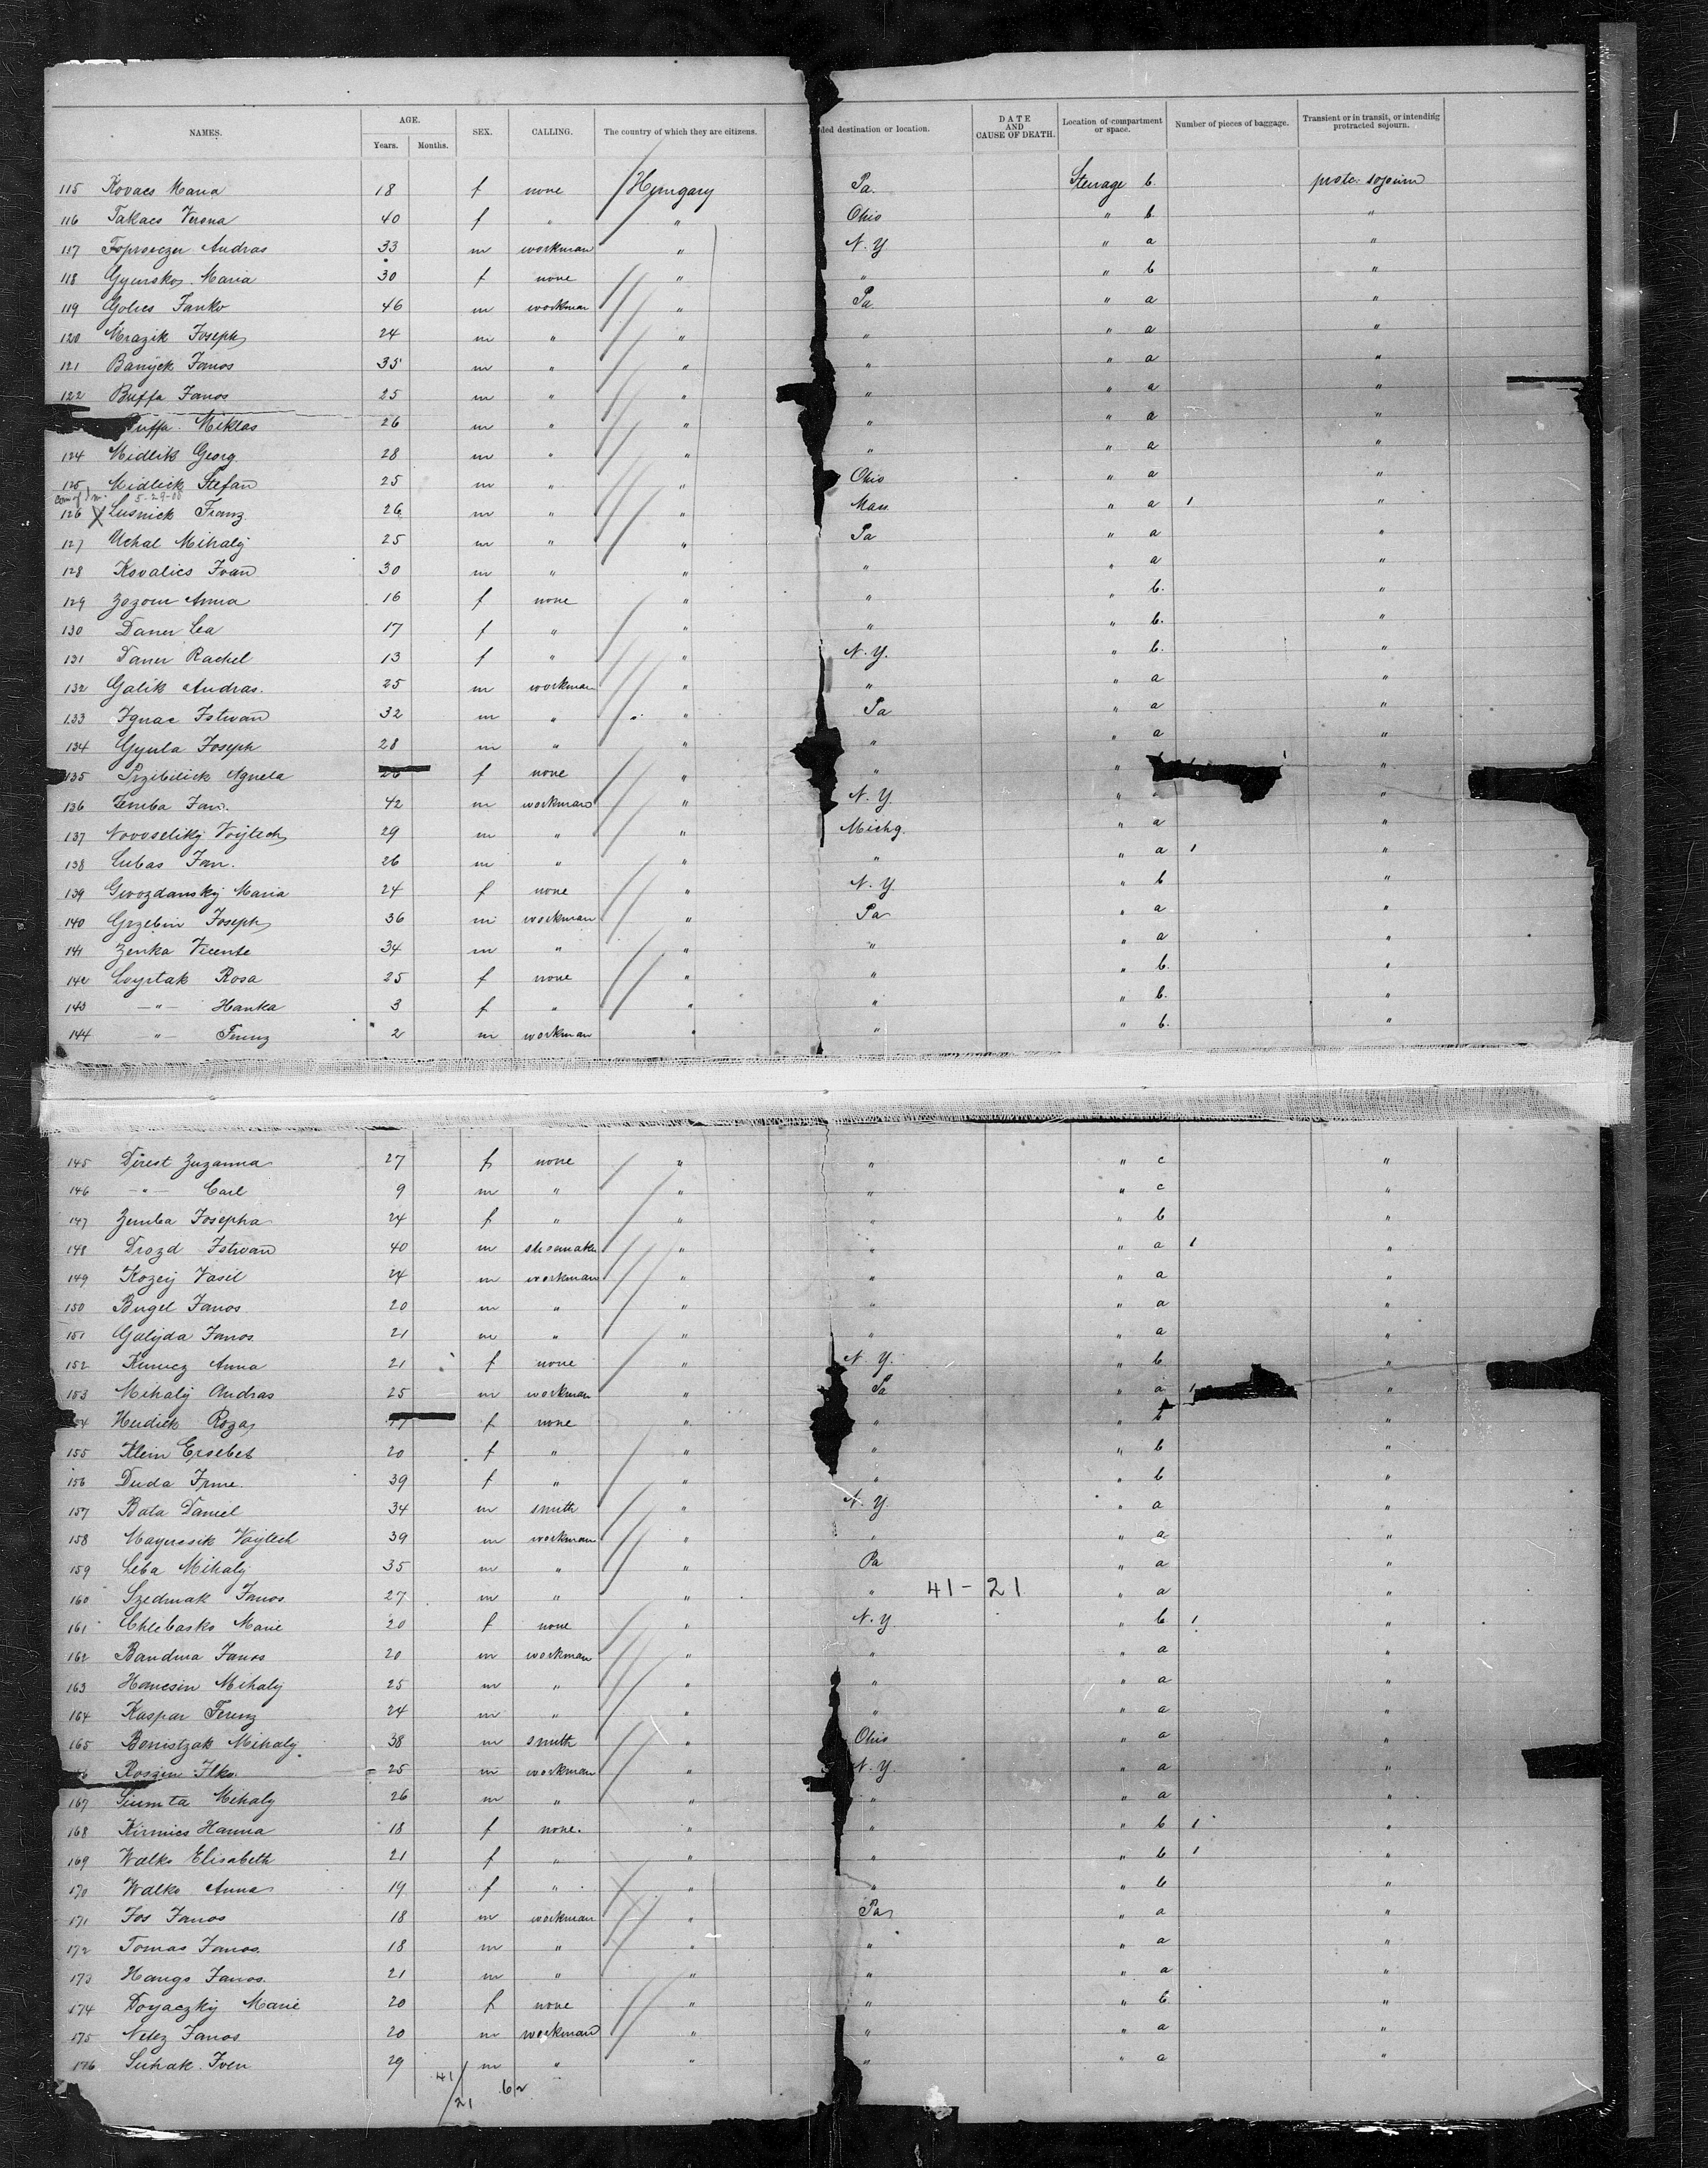 NAMES. AGE. Years. Months. SEX. CALLING. The country of which they are citizens. ded destination or location. DATE AND CAUSE OF DEATH. Location of compartment or space. Number of pieces of baggage. Transient or in transit, or intending protracted sojourn.
115 Kovacs Maria 18 f none Hungary Pa. Steerage b. protr. sojourn
116 Takacs Verona 40 f " " Ohio " b "
117 Andras 33 m workman " N.Y. " a "
118 Gyurskos Maria 30 f none " " " b "
119 Golics Janko 46 m workman " Pa. " a "
120 Mrazik Joseph 24 m " " " " a "
121 Banyek Janos 35 m " " " " a "
122 Buffa Janos 25 m " " " " a "
Buffa Miklas 26 m " " " " a "
124 Midlik Georg 28 m " " " " a "
125 Midlick Stefan 25 m " " Ohio " a "
5-29-08
126 X Lusnick Franz 26 m " " Mass " a 1 "
127 Uchal Mihaly 25 m " " Pa " a "
128 Kovalics Ivan 30 m " " " " a "
129 Zozom Anna 16 f none " " " b. "
130 Daner Lea 17 f " " " " b. "
131 Daner Rachel 13 f " " N.Y. " b. "
132 Galik Andras. 25 m workman " " " a "
133 Ignac Istwan 32 m " " Pa " a "
134 Gyula Joseph 28 m " " " " a "
135 Przibilick Agnela 26 f none " " " "
136 Zemba Jan. 42 m workman " N.Y. " "
137 Novoseliky Voytech 29 m " " Michg. " a "
138 Lubas Jan. 26 m " " " " a 1 "
139 Gwozdansky Maria 24 f none " N.Y. " b "
140 Grzebin Joseph 36 m workman " Pa " a "
141 Zenka Vicente 34 m " " " " a "
142 Rosa 25 f none " " " b. "
143 " Hanka 3 f " " " " b. "
144 " Ferenz 2 m workman " " " b. "
145 Direst Zuzanna 27 f none " " " c "
146 " Carl 9 m " " " " c "
147 Zemba Josepha 24 f " " " " b "
148 Drozd Istwan 40 m shoemaker " " " a 1 "
149 Kozeij Vasil 24 m workman " " " a "
150 Bugel Janos 20 m " " " " a "
151 Galyda Janos 21 m " " " " a "
152 Anna 21 f none " N.Y. " b. "
153 Mihaly Andras 25 m workman " Pa " a 1 "
Hudick Roza f none " " " b "
155 Klein Ersebet 20 f " " " " b "
156 Duda 39 f " " " " b "
157 Bata Daniel 34 m smith " N.Y. " a "
158 Voytech 39 m workman " " " a "
159 Leba Mihaly 35 m " " Pa " a "
160 Szedmak Janos 27 m " " " 41-21 " a "
161 Chlebasko Marie 20 f none " N.Y " b 1 "
162 Bandura Janos 20 m workman " " " a "
163 Hancsin Mihaly 25 m " " " " a "
164 Kaspar Ferenz 24 m " " " " a "
165 Mihaly 38 m smith " Ohio " a "
Roszin Ilko 25 m workman " N.Y. " a "
167 Mihaly 26 m " " " " a "
168 Kirnics Hanna 18 f none. " " " b 1 "
169 Walko Elisabeth 21 f " " " " b 1 "
170 Walko Anna 19 f " " " " b "
171 Jos Janos 18 m workman " Pa " a "
172 Tomas Janos. 18 m " " " " a "
173 Hango Janos. 21 m " " " " a "
174 Doyaczky Marie 20 f none " " " b "
175 Netez Janos 20 m workman " " " a "
176 Suhak Iven 29 m " " " " a "
41/21 62